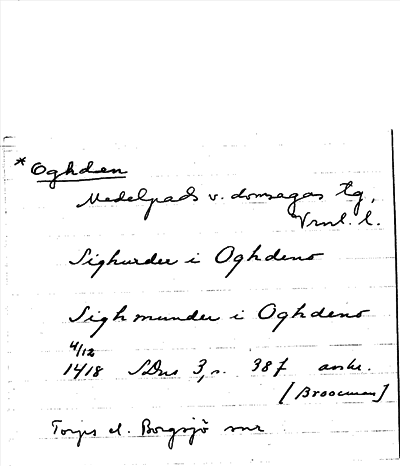 * Oghden
Medelpads v. domsagas tg,
Vrml. l.
Sighurder i Oghdeno
Sighmunder i Oghdeno
4/12
1418 SDns 3, s. 38 f avskr.
[Broocman]
Torps el. Borgsjö snr